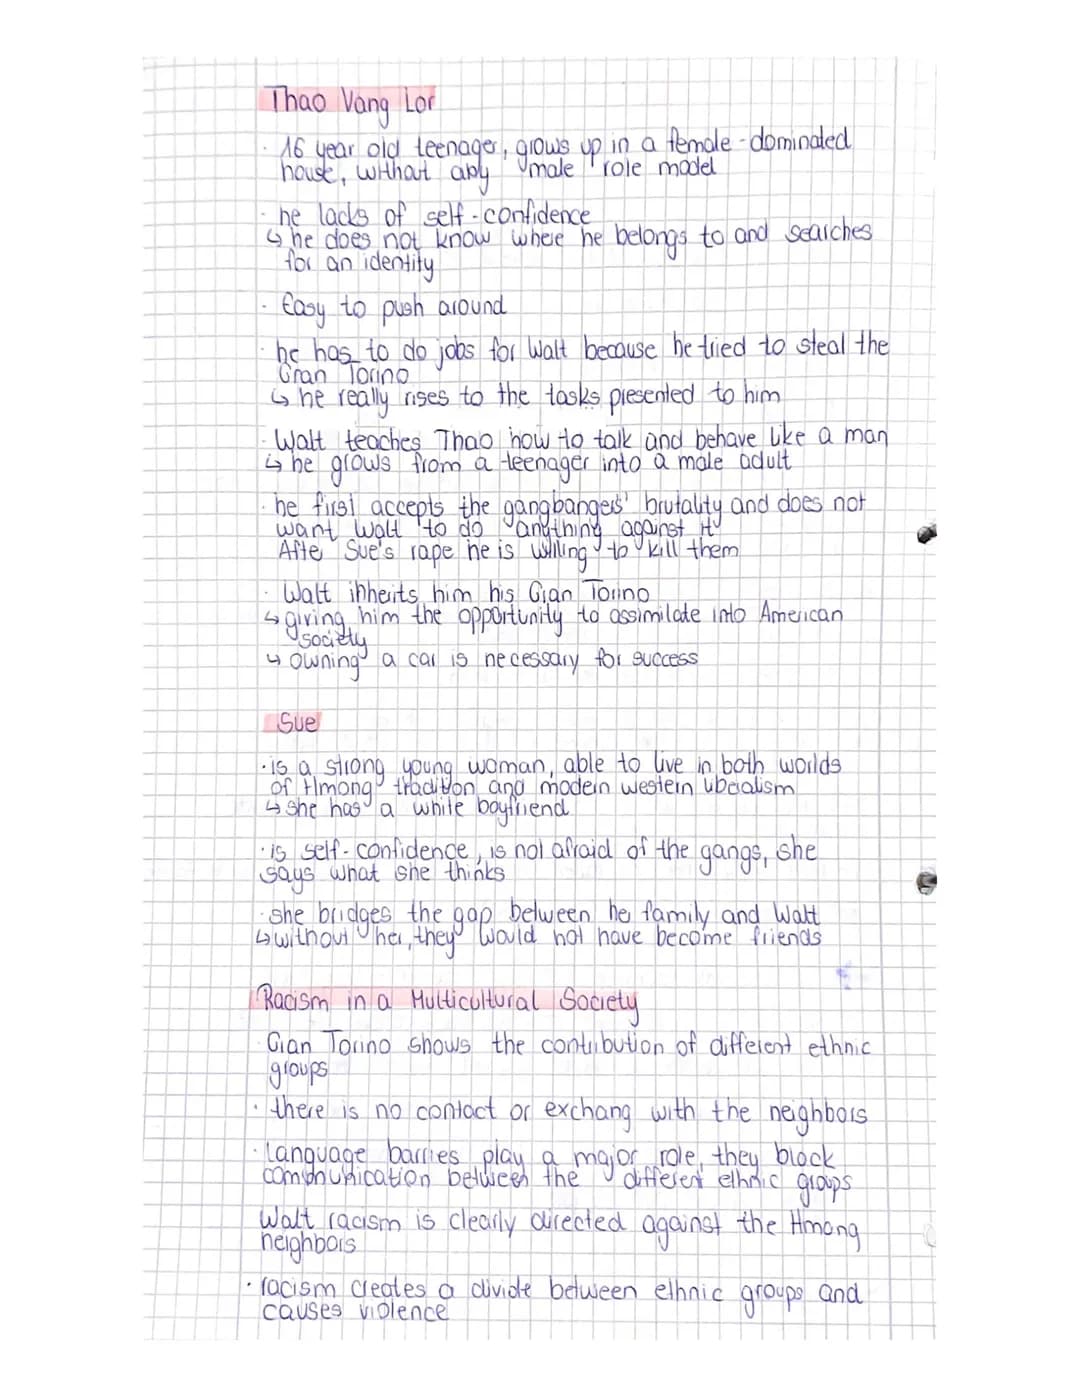 Thao Vang Lor
· 16 year old teenager, grows up in a female-dominated
house, without any male role model
- he lacks of self-confidence
↳ he does not know where he belongs to and searches
for an identity
· Easy to push around
· he has to do jobs for Walt because he tried to steal the
Gran Torino
↳ he really rises to the tasks presented to him
· Walt teaches Thao how to talk and behave like a man
↳ he grows from a teenager into a male adult
· he first accepts the gangbangers' brutality and does not
want Walt to do anything against it
Afte Sue's rape he is willing to kill them
· Walt inherits him his Gran Torino
↳ giving him the opportunity to assimilate into American
society
↳ owning a car is necessary for success
Sue
· is a strong young woman, able to live in both worlds
of Hmong tradition and modern western liberalism
↳ she has a white boyfriend
· is self-confidence, is not afraid of the gangs, she
says what she thinks
· she bridges the gap between he family and Walt
↳ without her, they would not have become friends
Racism in a Multicultural Society
· Gran Torino shows the contribution of different ethnic
groups
· there is no contact or exchang with the neighbors
· Language barries play a major role, they block
communication between the different ethnic groups
Walt racism is clearly directed against the Hmong
neighbors
· racism creates a divide between ethnic groups and
causes violence